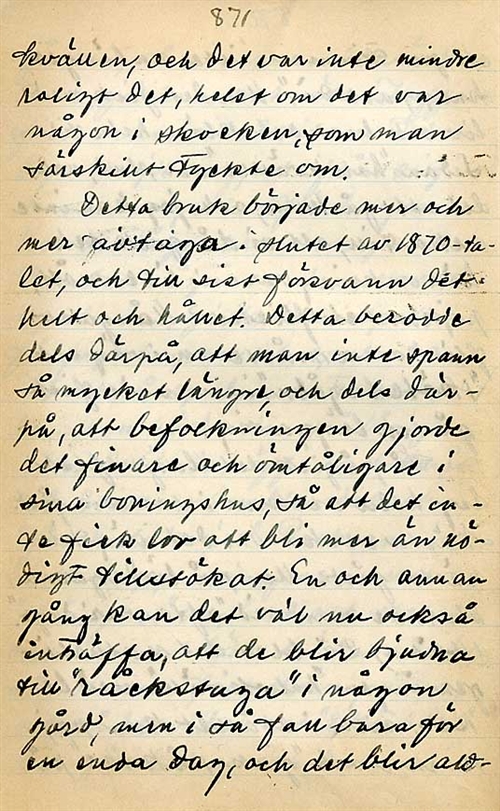 871
kvällen, och det var inte mindre
roligt det, helst om det var
någon i skocken, som man
särskilt tyckte om.
Detta bruk började mer och
mer avtaga i slutet av 1870-ta-
let, och till sist försvann det
helt och hållet. Detta berodde
dels därpå, att man inte spann
så mycket längre, och dels där-
på, att befolkningen gjorde
det finare och ömtåligare i
sina boningshus, så att det in-
te fick lov att bli mer än nö-
digt tillstökat. En och annan
gång kan det väl nu också
inträffa, att de blir bjudna
till "råckstuga" i någon
gård, men i så fall bara för
en enda dag, och det blir ald-